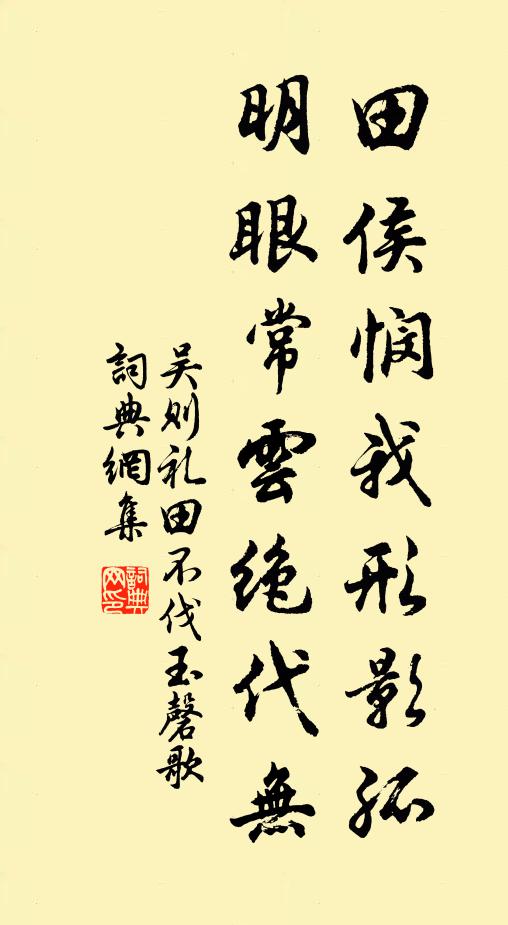 田侯憫我形影孤
明眼常雲絶代無
吴则礼田不伐玉磬歌
詞典網集
詞典
网印